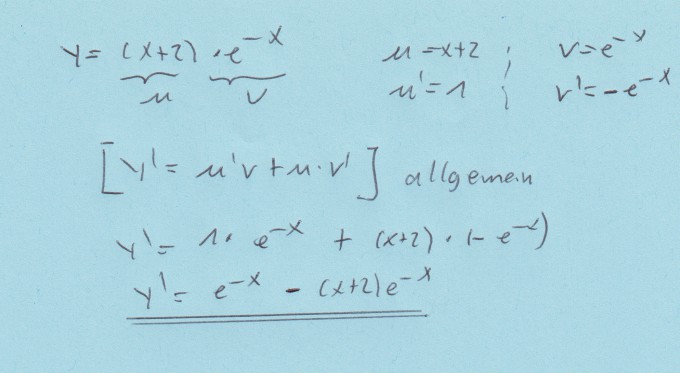 y = (x+2) · e^-x u = x+2 ; v = e^-x
u v u' = 1 ; v' = -e^-x
[y' = u'v + u·v'] allgemein
y' = 1· e^-x + (x+2) · (-e^-x)
y' = e^-x - (x+2)e^-x